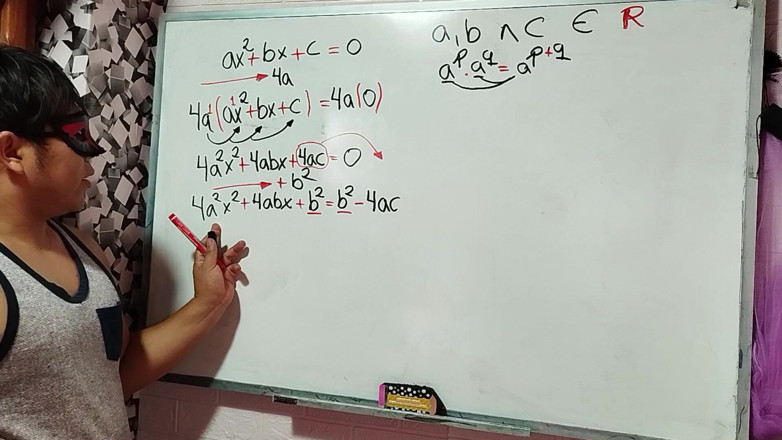 ax² + bx + c = 0
4a
4a¹(a¹x² + bx + c) = 4a(0)
4a²x² + 4abx + 4ac = 0
+ b²
4a²x² + 4abx + b² = b² - 4ac
a, b ∧ c ∈ R
aᵖ · a^q = a^(p+q)